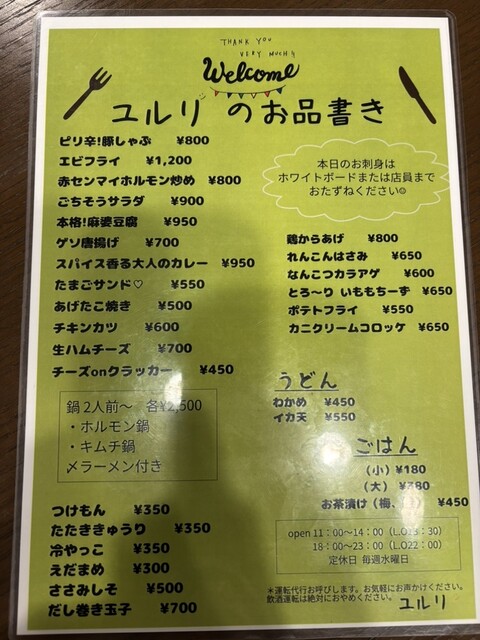 THANK YOU
VERY MUCH!
Welcome
ユルリ のお品書き
ピリ辛!豚しゃぶ ¥800
エビフライ ¥1,200
赤センマイホルモン炒め ¥800
ごちそうサラダ ¥900
本格!麻婆豆腐 ¥950
ゲソ唐揚げ ¥700
スパイス香る大人のカレー ¥950
たまごサンド♡ ¥550
あげたこ焼き ¥500
チキンカツ ¥600
生ハムチーズ ¥700
チーズonクラッカー ¥450
鍋 2人前〜 各¥2,500
・ホルモン鍋
・キムチ鍋
〆ラーメン付き
つけもん ¥350
たたききゅうり ¥350
冷やっこ ¥350
えだまめ ¥300
ささみしそ ¥500
だし巻き玉子 ¥700
本日のお刺身は
ホワイトボードまたは店員まで
おたずねください☺
鶏からあげ ¥800
れんこんはさみ ¥650
なんこつカラアゲ ¥600
とろ〜り いももちーず ¥650
ポテトフライ ¥550
カニクリームコロッケ ¥650
うどん
わかめ ¥450
イカ天 ¥550
ごはん
(小) ¥180
(大)
お茶漬け (梅、 ¥450
open 11:00〜14:00 (L.O :30)
18:00〜23:00 (L.O22:00)
定休日 毎週水曜日
＊運転代行お呼びします。お気軽にお声かけください。
飲酒運転は絶対におやめください。 ユルリ